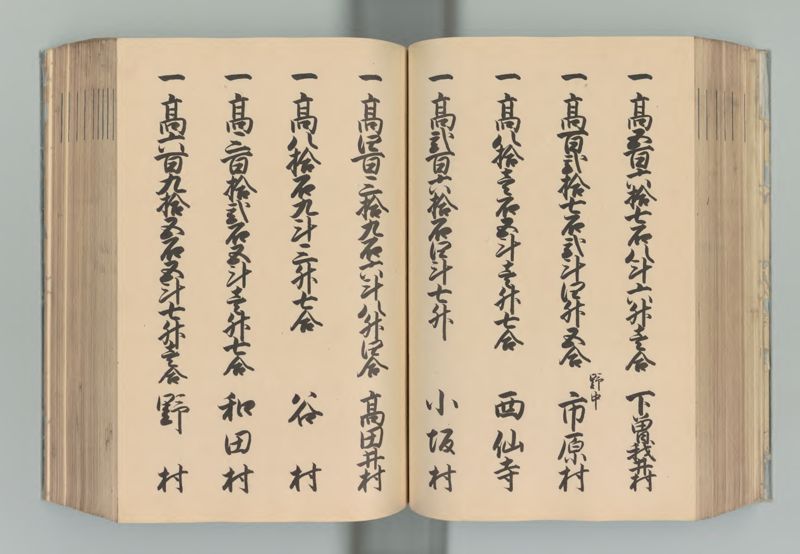 一 高五百六拾七石八斗六升壱合 下曽我井村
一 高百弐拾七石弐斗四升五合 野中 市原村
一 高八拾壱石五斗壱升七合 西仙寺
一 高弐百六拾石四斗七升 小坂村
一 高四百三拾九石六斗八升四合 高田井村
一 高八拾石九斗三升七合 谷村
一 高三百拾弐石五斗壱升七合 和田村
一 高六百九拾五石五斗七升壱合 野村